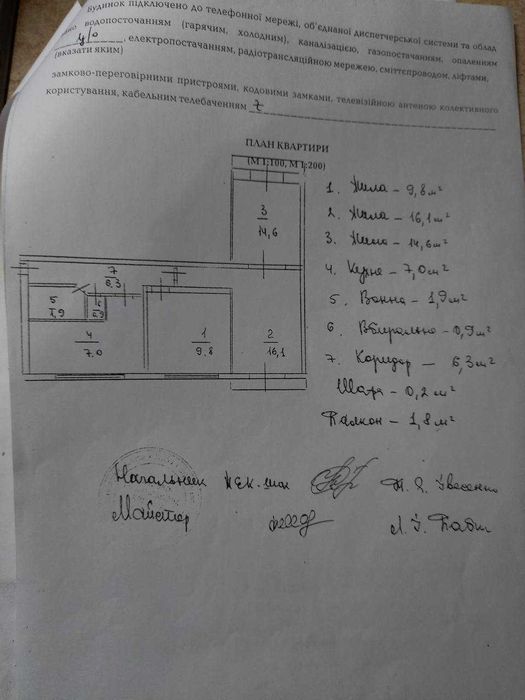 Будинок підключено до телефонної мережі, об'єднаної диспетчерської системи та облад
нано водопостачанням (гарячим, холодним), каналізацією, газопостачанням, опаленням
ц/о, електропостачанням, радіотрансляційною мережею, сміттєпроводом, ліфтами,
(вказати яким)
замково-переговірними пристроями, кодовими замками, телевізійною антеною колективного
користування, кабельним телебаченням
ПЛАН КВАРТИРИ
(М 1:100, М 1:200)
3
14,6
7
6,3
5
1,9
6
0,9
4
7.0
1
9.8
2
16,1
1. Жила – 9,8 м²
2. Жила – 16,1 м²
3. Жила – 14,6 м²
4. Кухня – 7,0 м²
5. Ванна – 1,9 м²
6. Вбиральня – 0,9 м²
7. Коридор – 6,3 м²
Шафа – 0,2 м²
Балкон – 1,8 м²
Начальник
Майстер